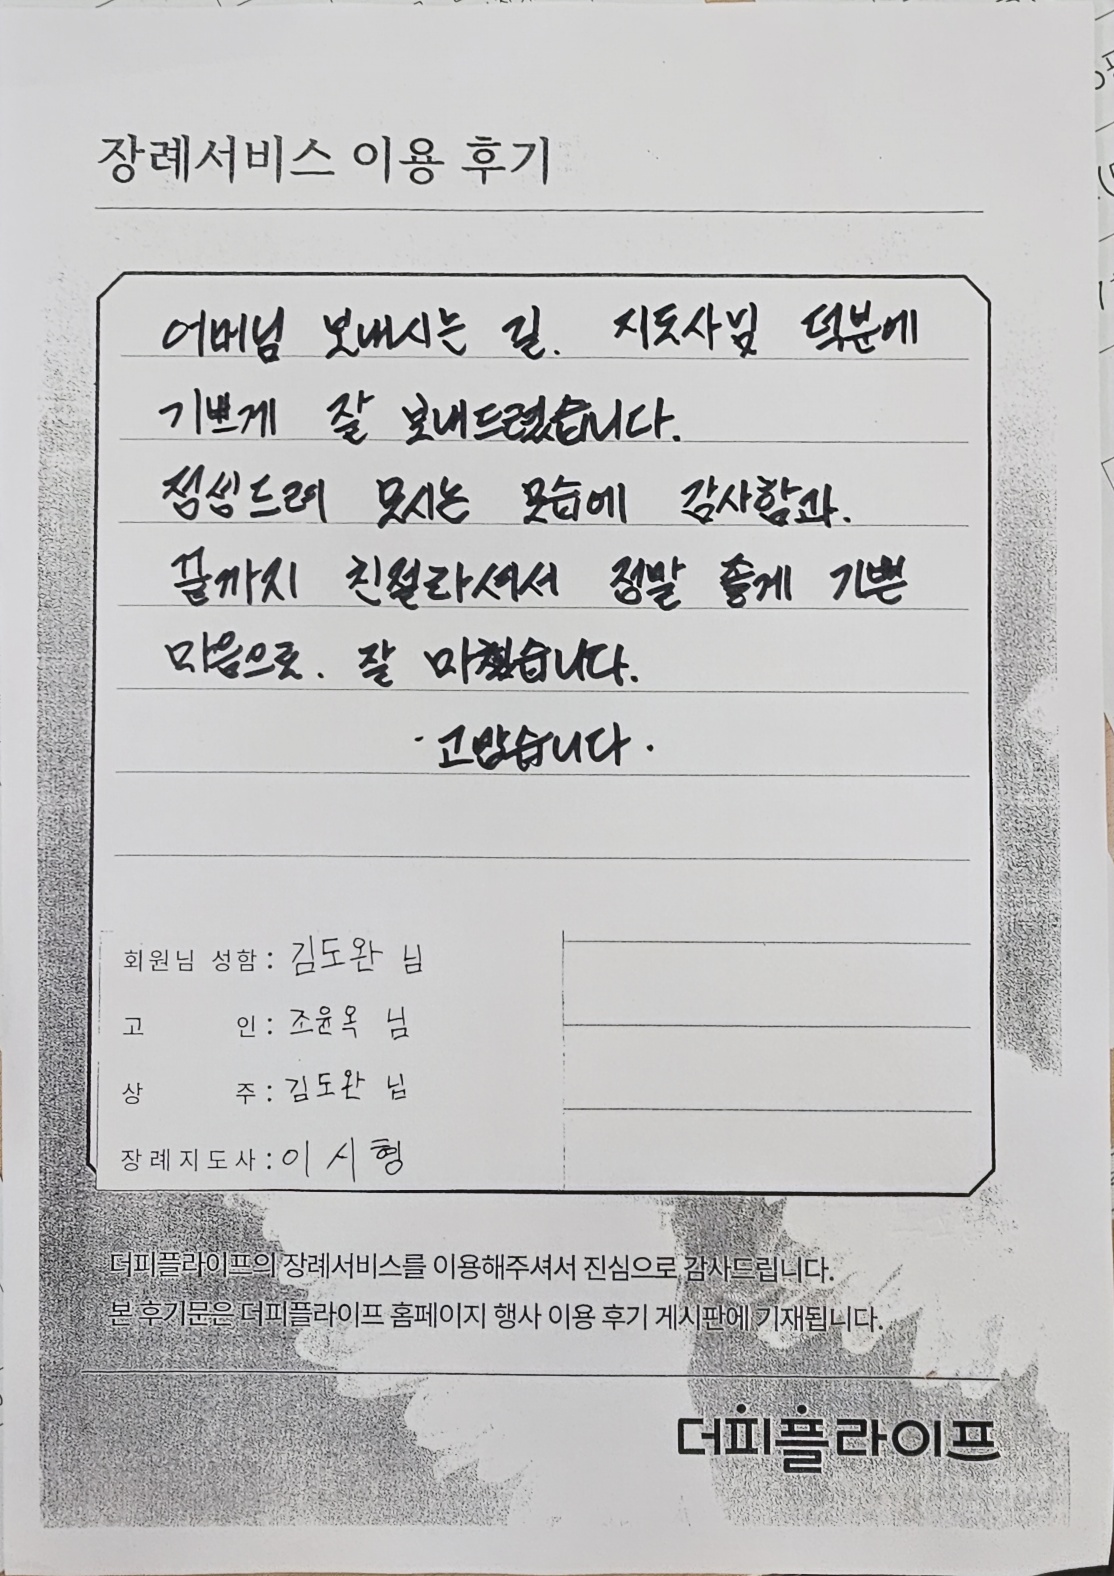 장례서비스 이용 후기
어머님 보내시는 길. 지도사님 덕분에
기쁘게 잘 보내드렸습니다.
모시는 모습에 감사함과.
끝까지 친절하셔서 정말 좋게 기쁜
마음으로. 잘 마쳤습니다.
· 고맙습니다 ·
회원님 성함 : 김도완 님
고 인 : 조윤옥 님
상 주 : 김도완 님
장례지도사 : 이시형
더피플라이프의 장례서비스를 이용해주셔서 진심으로 감사드립니다.
본 후기문은 더피플라이프 홈페이지 행사 이용 후기 게시판에 기재됩니다.
더피플라이프